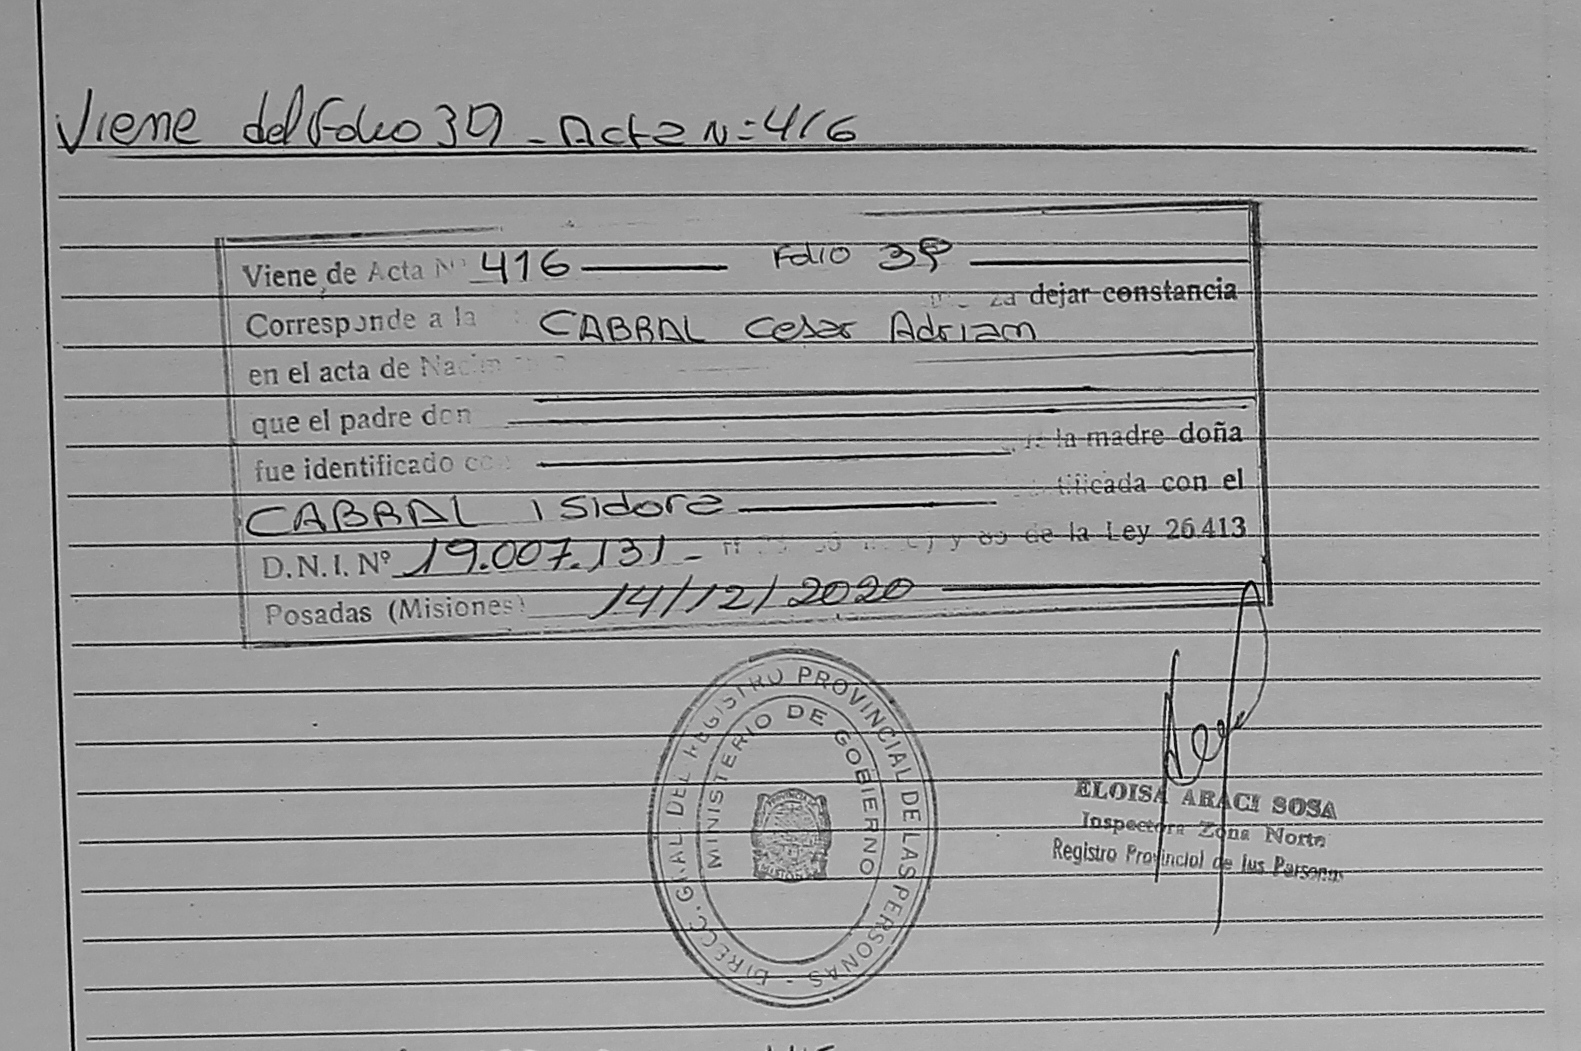 Viene del Folio 39 - Acta N=416
Viene de Acta Nº 416 Folio 39
Corresponde a la dejar constancia
CABRAL Cesar Adrian
en el acta de
que el padre don
fue identificado la madre doña
CABRAL Isidora con el
D.N.I. Nº 19.007.131 - y 85 de la Ley 26.413
Posadas (Misiones) 14/12/2020
DIRECC. GRAL. DEL REGISTRO PROVINCIAL DE LAS PERSONAS -
MINISTERIO DE GOBIERNO
ELOISA ARACI SOSA
Inspectora Zona Norte
Registro Provincial de las Personas